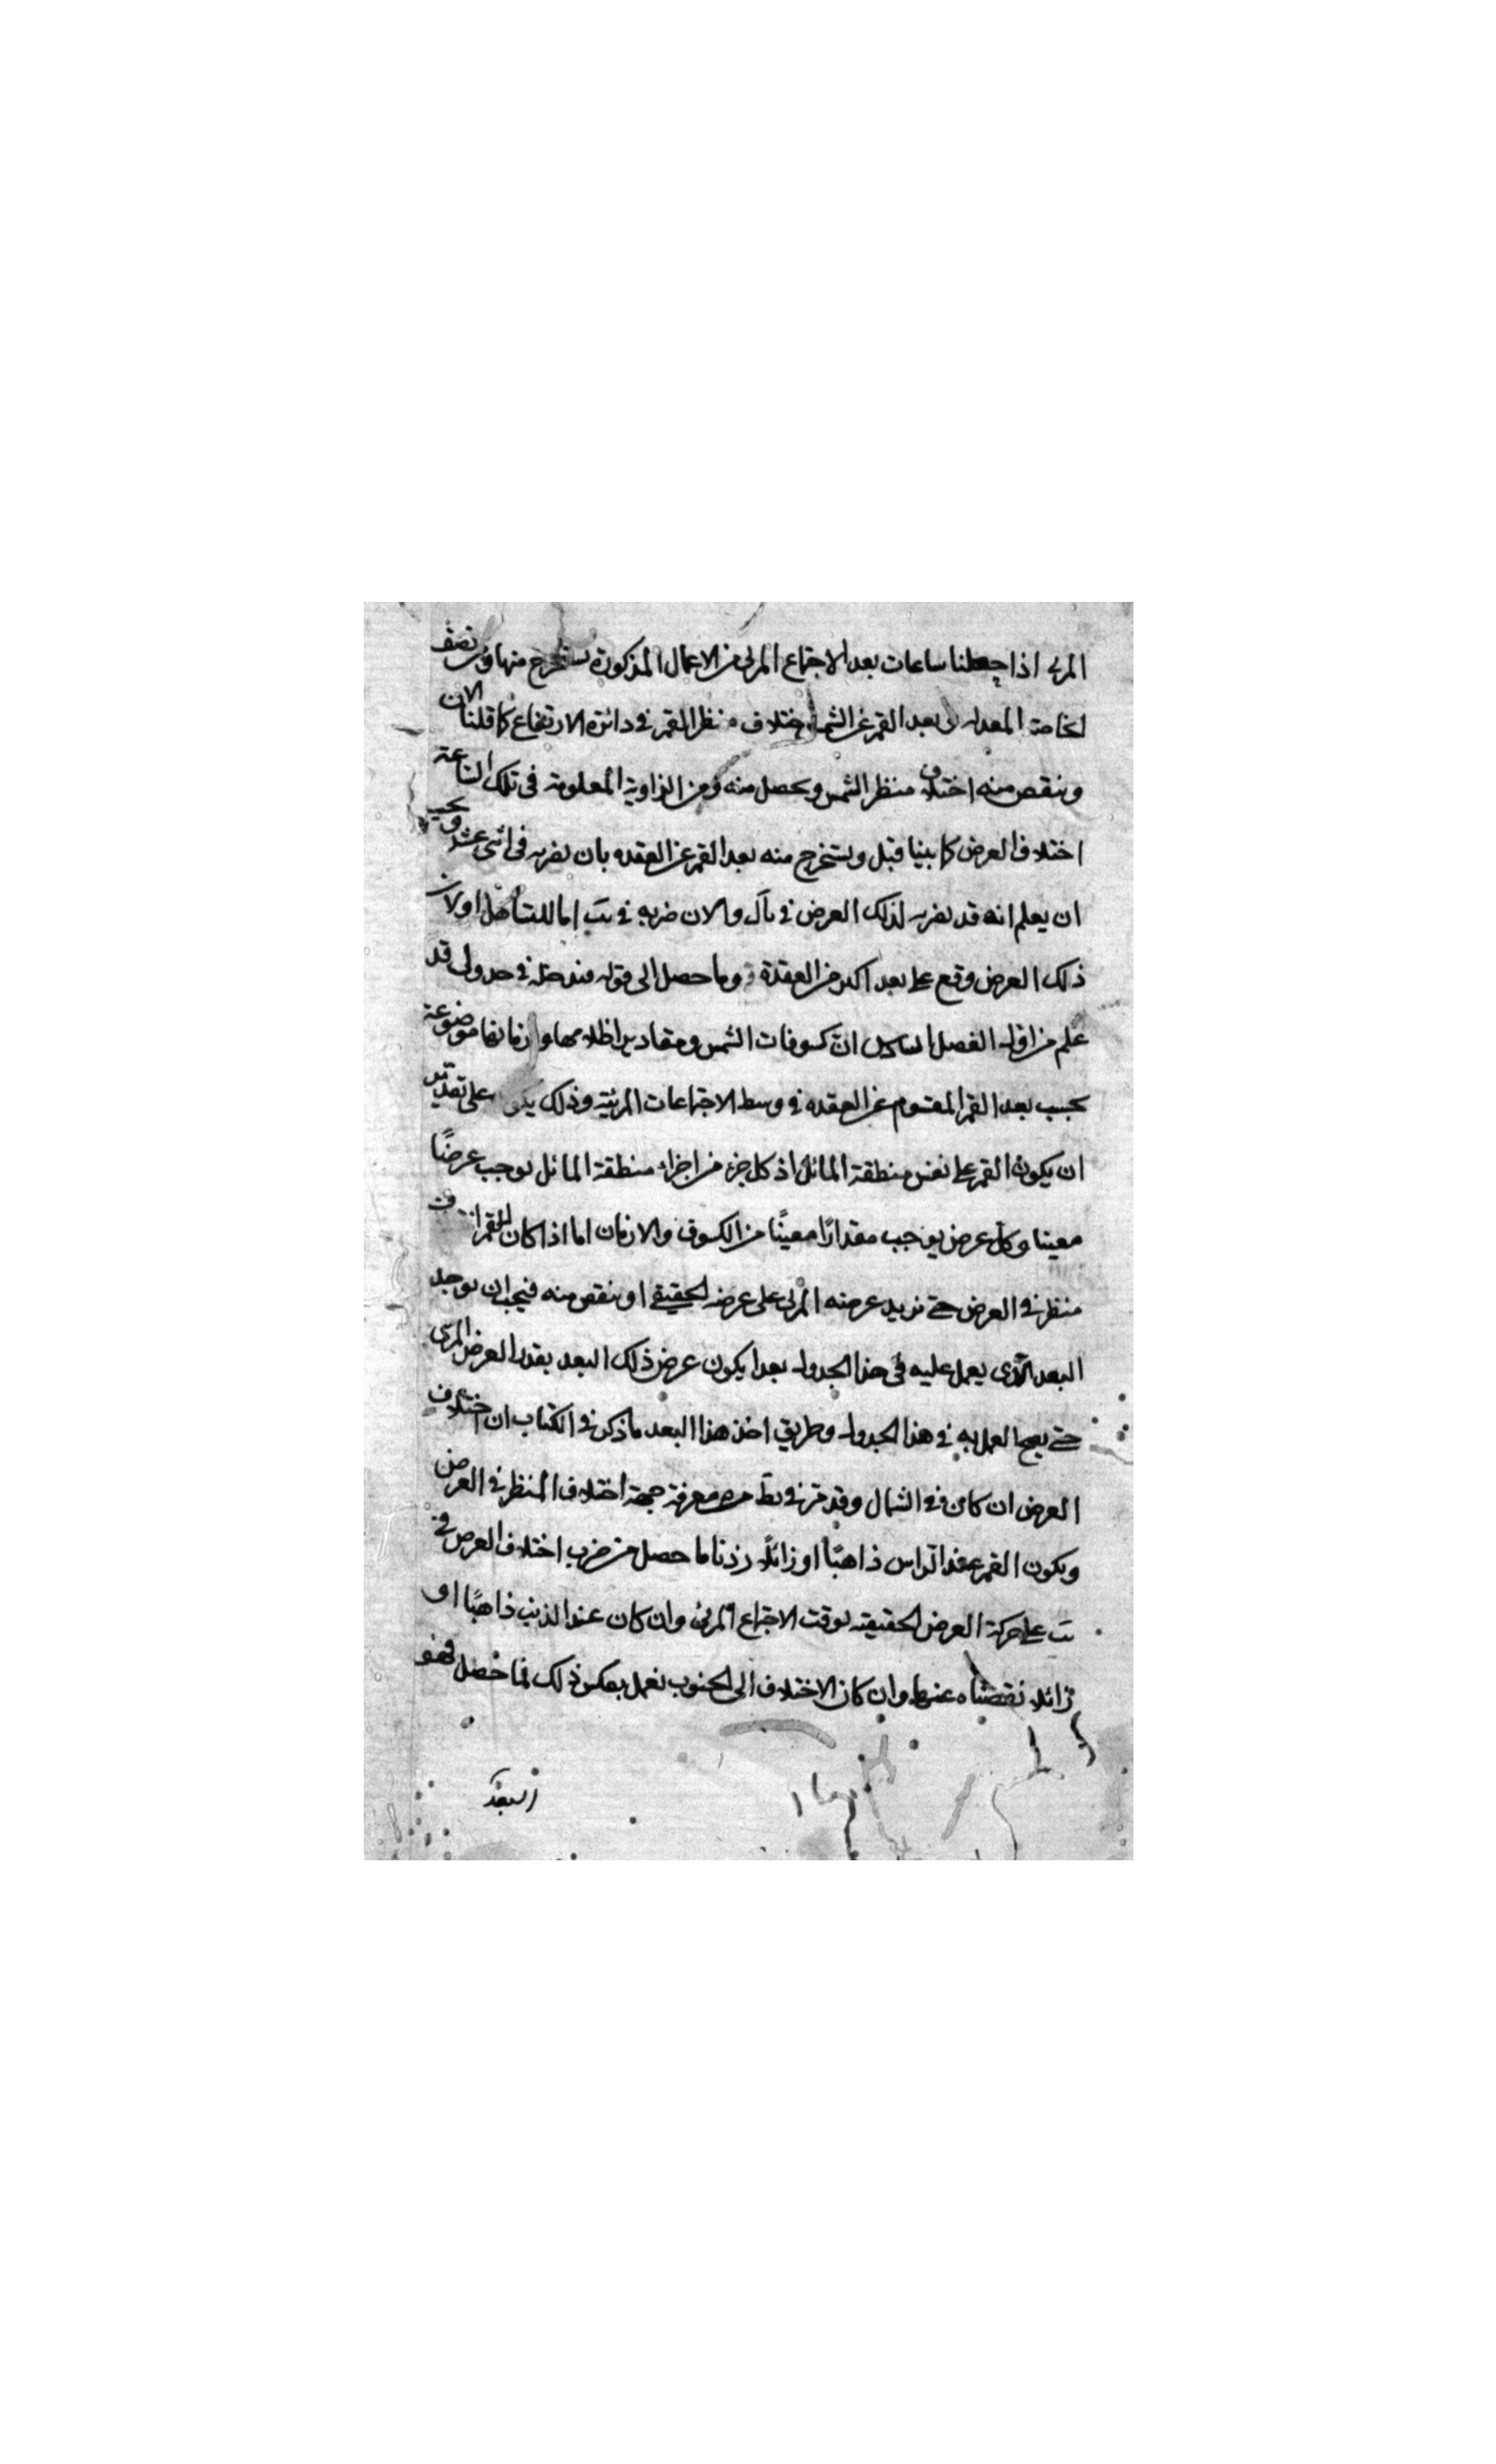 المرئى اذا جعلنا ساعات بعد الاجتماع المرئى من الاعمال المذكورة نستخرج منها ومن نصف
الخاصة المعدلة لى بعد القمر عن الشمس اختلاف منظر القمر فى دائرة الارتفاع كما قلنا الان
وننقص منه اختلاف منظر الشمس ويحصل منه ومن الزاوية المعلومة فى تلك الساعة
اختلاف العرض كما بينا قبل ونستخرج منه بعد القمر عن العقده بان نضربه فى اثنى عشر ويجب
ان يعلم انه قد نضرب لذلك العرض فى يآل والان ضربه فى يب اما للتساهل او لان
ذلك العرض وقع على بعد اكثر من العقدة وما حصل الى قوله فندخله فى جدولى قد
علم من اول الفصل السادس ان كسوفات الشمس ومقادير اظلامها وازمانها موضوعة
بحسب بعد القمر المقسوم عن العقده فى وسط الاجتماعات المرئية وذلك يكون على تقدير
ان يكون القمر على نفس منطقة المائل اذ كل جزء من اجزاء منطقة المائل يوجب عرضًا
معينا وكل عرض يوجب مقدارًا معينًا من الكسوف والازمان اما اذا كان للقمر
منظر فى العرض حتى نزيد عرضه المرئى على عرضه الحقيقى او ننقص منه فيجب ان يوجد
البعد الذى يعمل عليه فى هذا الجدول بعدا يكون عرض ذلك البعد بقدر العرض المرئى
حتى يصح العمل به فى هذا الجدول وطريق اخذ هذا البعد ما ذكر فى الكتاب ان اختلاف
العرض ان كان فى الشمال وقد مر فى يط معرفة جهة اختلاف المنظر فى العرض
ويكون القمر عند الراس ذاهبًا او زائلًا زدنا ما حصل من ضرب اختلاف العرض فى
يب على حركة العرض الحقيقية لوقت الاجتماع المرئى وان كان عند الذنب ذاهبًا او
زائلا نقصناه عنها وان كان الاختلاف الى الجنوب نعمل بعكس ذلك فما حصل فهو